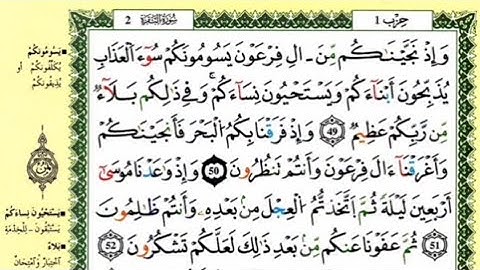 حزب 1
سورة البقرة 2
وَإِذْ نَجَّيْنَٰكُم مِّنَ ءَالِ فِرْعَوْنَ يَسُومُونَكُمْ سُوٓءَ ٱلْعَذَابِ
يُذَبِّحُونَ أَبْنَآءَكُمْ وَيَسْتَحْيُونَ نِسَآءَكُمْ ۚ وَفِى ذَٰلِكُم بَلَآءٌ
مِّن رَّبِّكُمْ عَظِيمٌ 49 وَإِذْ فَرَقْنَا بِكُمُ ٱلْبَحْرَ فَأَنجَيْنَٰكُمْ
وَأَغْرَقْنَآ ءَالَ فِرْعَوْنَ وَأَنتُمْ تَنظُرُونَ 50 وَإِذْ وَٰعَدْنَا مُوسَىٰٓ
أَرْبَعِينَ لَيْلَةً ثُمَّ ٱتَّخَذتُّمُ ٱلْعِجْلَ مِنۢ بَعْدِهِۦ وَأَنتُمْ ظَٰلِمُونَ
51 ثُمَّ عَفَوْنَا عَنكُم مِّنۢ بَعْدِ ذَٰلِكَ لَعَلَّكُمْ تَشْكُرُونَ 52
يَسُومُونَكُمْ
يُكَلِّفُونَكُمْ أو
يُذِيقُونَكُمْ
يَسْتَحْيُونَ نِسَاءَكُمْ
يَسْتَبْقُونَ - لِلْخِدْمَةِ
بَلَاءٌ
اخْتِبَارٌ وامْتِحَانٌ